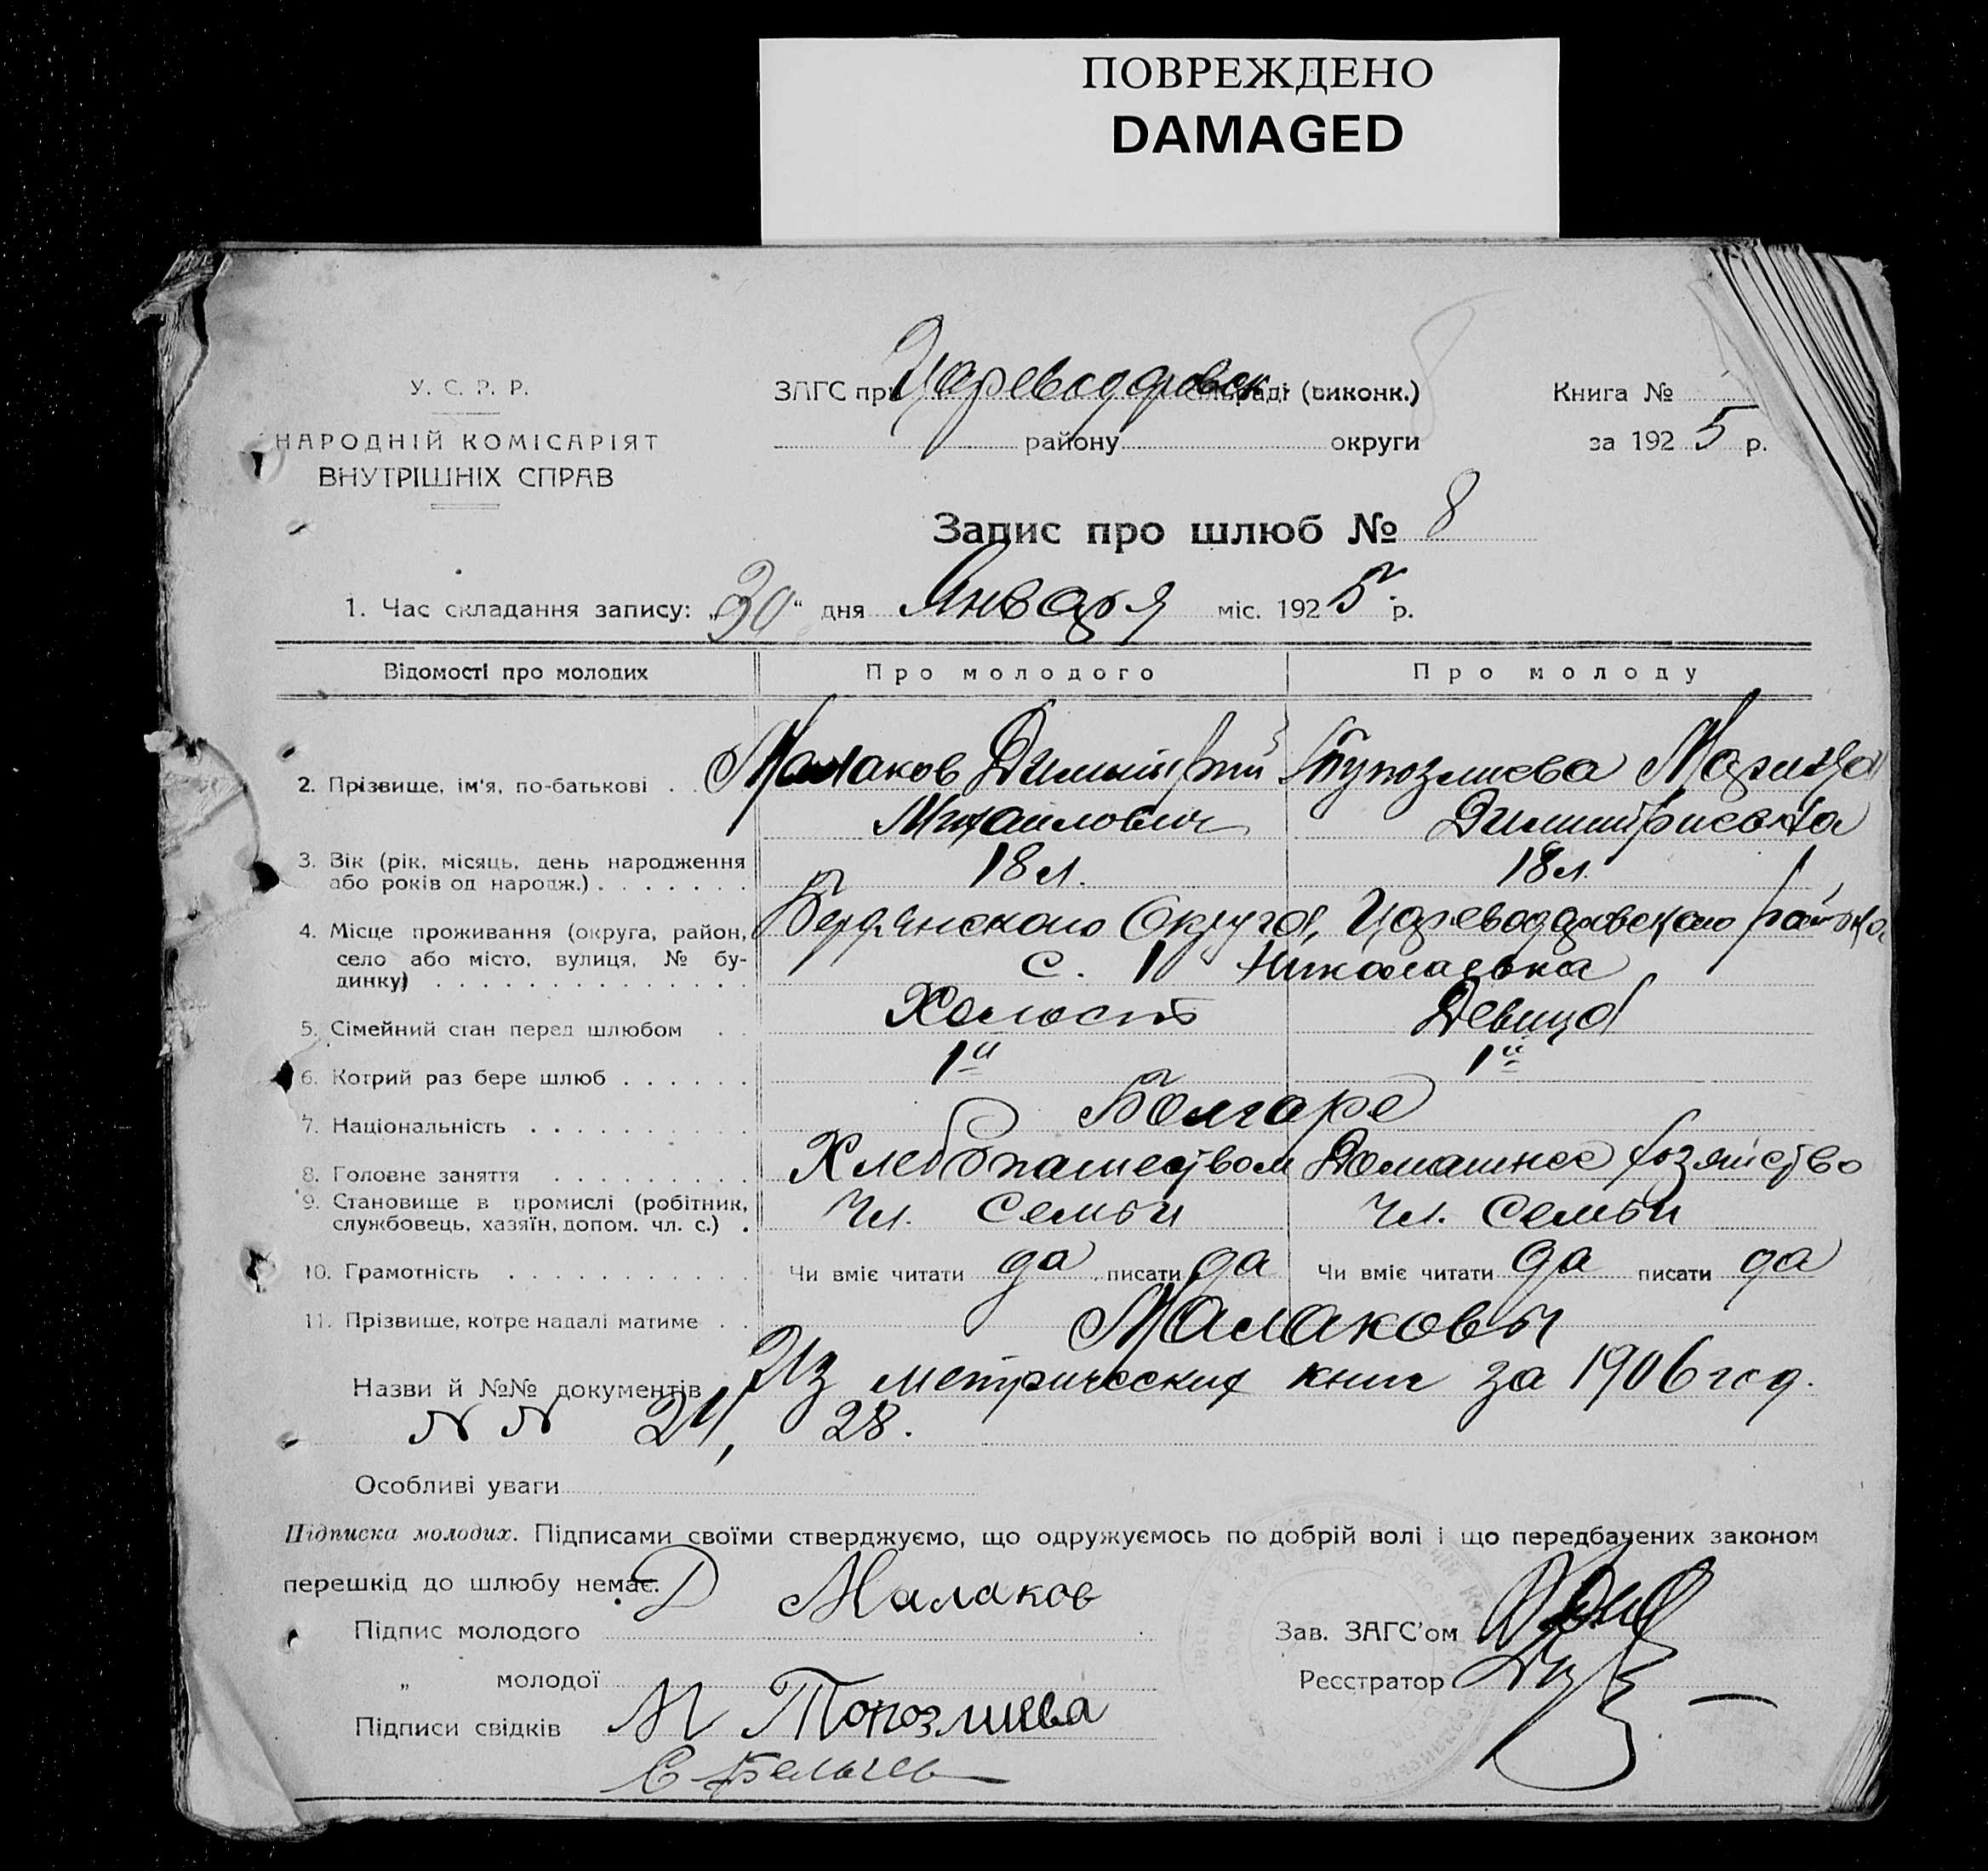 ПОВРЕЖДЕНО
DAMAGED
У. С. Р. Р.
НАРОДНІЙ КОМІСАРІЯТ
ВНУТРІШНІХ СПРАВ
ЗАГС при Цареводаровск. раді (виконк.)
району округи
Книга №
за 1925 р.
8
Запис про шлюб № 8
1. Час складання запису: „30“ дня Января міс. 1925 р.
Відомості про молодих Про молодого Про молоду
2. Прізвище, ім'я, по-батькові . . Малаков Димитрий Тупозлиева Марина
Михаилович Димитриевна
3. Вік (рік, місяць, день народження
або років од народж.) . . . . . . . 18 л. 18 л.
4. Місце проживання (округа, район,
село або місто, вулиця, № бу-
динку) . . . . . . . . . . . . . .
Бердянского Округа, Цареводаровского района
с. 1 Николаевка
5. Сімейний стан перед шлюбом . Холост Девица
6. Котрий раз бере шлюб . . . . . . 1й 1й
7. Національність . . . . . . . . . . Болгаре
8. Головне заняття . . . . . . . . . Хлебопашеством Домашнее хозяйство
9. Становище в промислі (робітник,
службовець, хазяїн, допом. чл. с.) . Чл. Семьи Чл. Семьи
10. Грамотність . . . . . . . . . . . Чи вміє читати да писати да Чи вміє читати да писати да
11. Прізвище, котре надалі матиме . . Малаковы
Назви й №№ документів Из метрических книг за 1906 год.
N N 21, 28.
Особливі уваги
Підписка молодих. Підписами своїми стверджуємо, що одружуємось по добрій волі і що передбачених законом
перешкід до шлюбу немає.
Підпис молодого Д Малаков
Зав. ЗАГС'ом
„ молодої
Реєстратор
Підписи свідків М Топозлиева
С Бельчев